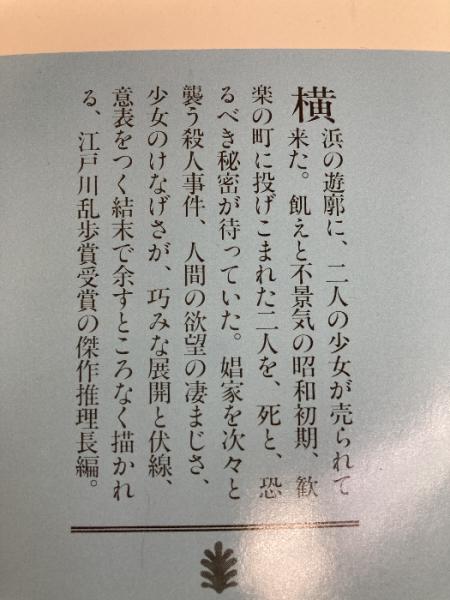 横浜の遊廓に、二人の少女が売られて
来た。飢えと不景気の昭和初期、歓
楽の町に投げこまれた二人を、死と、恐
るべき秘密が待っていた。娼家を次々と
襲う殺人事件、人間の欲望の凄まじさ、
少女のけなげさが、巧みな展開と伏線、
意表をつく結末で余すところなく描かれ
る、江戸川乱歩賞受賞の傑作推理長編。